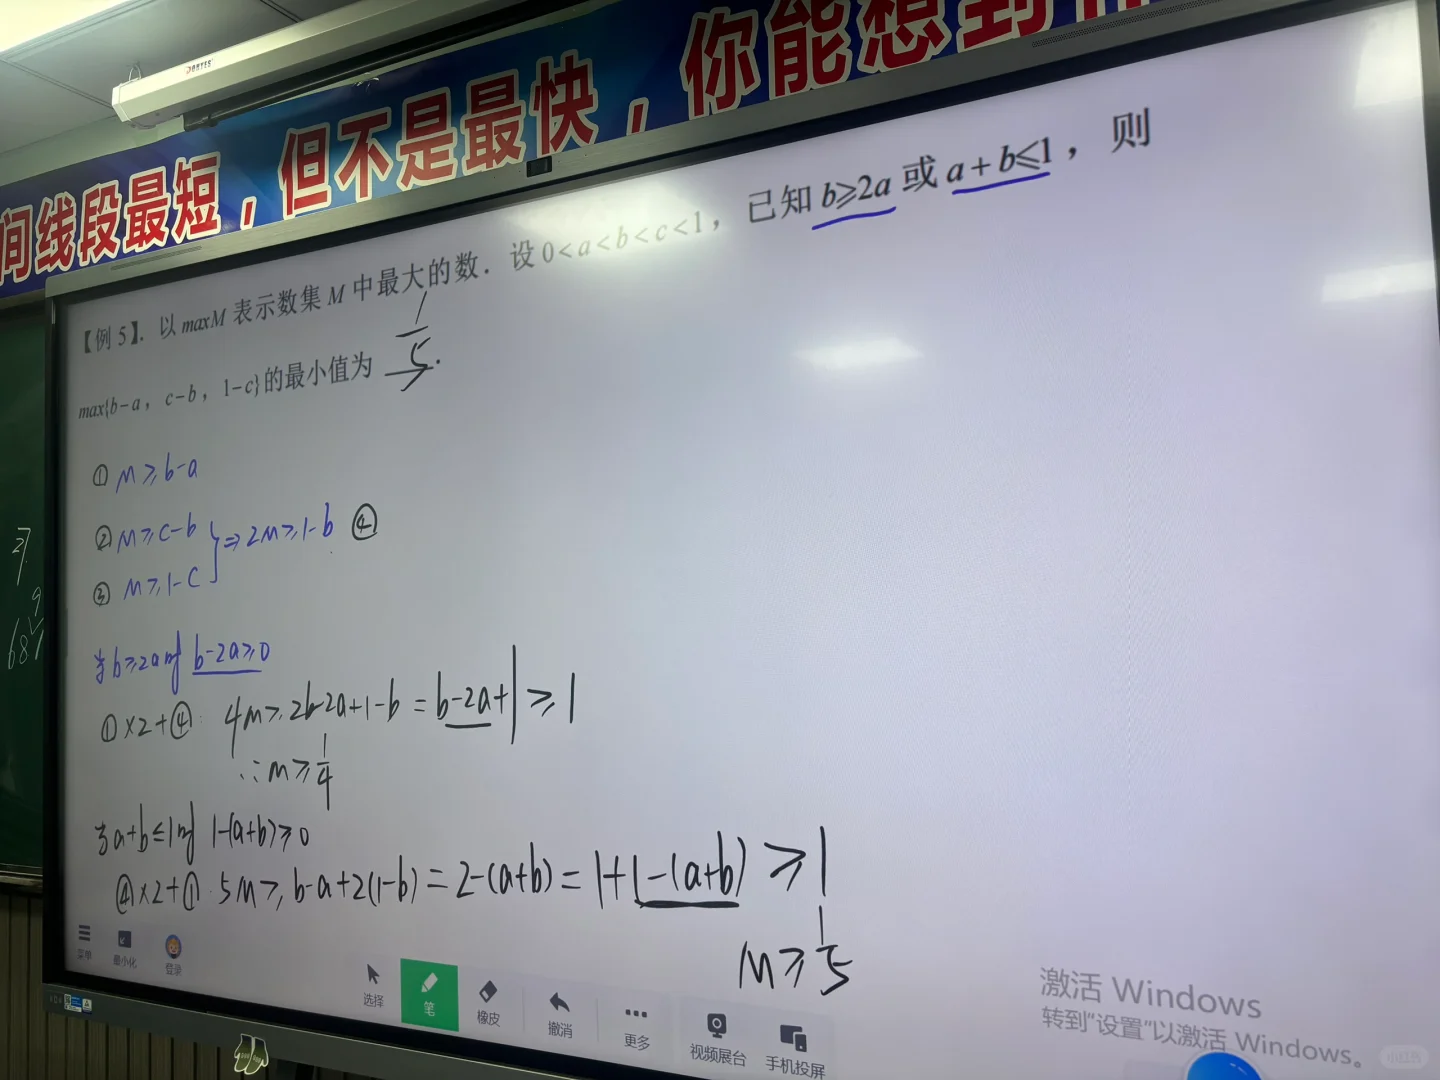 间线段最短，但不是最快，你能想到
【例 5】．以 maxM 表示数集 M 中最大的数．设 0<a<b<c<1，已知 b≥2a 或 a+b≤1，则
max{b-a，c-b，1-c}的最小值为 1/5 .
① M≥b-a
② M≥c-b
③ M≥1-c
⇒2M≥1-b ④
当b≥2a时 b-2a≥0
①×2+④: 4M≥2b-2a+1-b=b-2a+1≥1
∴M≥1/4
当a+b≤1时 1-(a+b)≥0
④×2+①: 5M≥b-a+2(1-b)=2-(a+b)=1+1-(a+b)≥1
M≥1/5
27
9
菜单
最小化
登录
选择
笔
橡皮
撤消
更多
视频展台
手机投屏
激活 Windows
转到"设置"以激活 Windows。
小红书